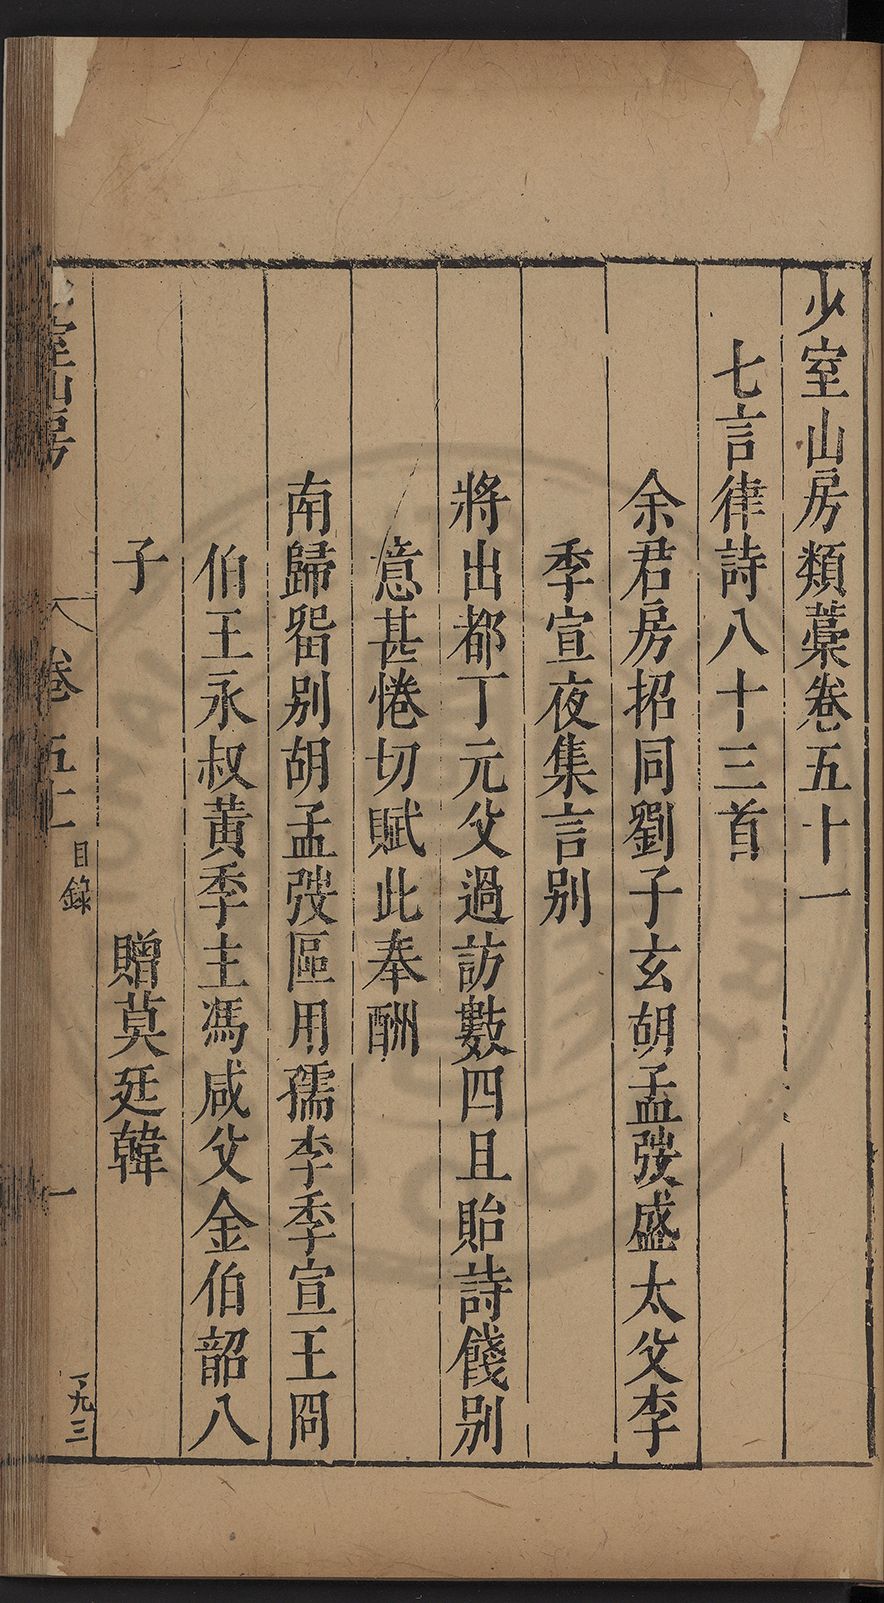 少室山房類藁卷五十一
七言律詩八十三首
余君房招同劉子玄胡孟弢盛太父李
季宣夜集言别
將出都丁元父過訪數四且貽詩餞别
意甚惓切賦此奉酬
南歸畱别胡孟弢區用孺李季宣王冏
伯王永叔黄季主馮咸父金伯韶八
子　贈莫廷韓
室山房　卷五十　目錄　一　一九三